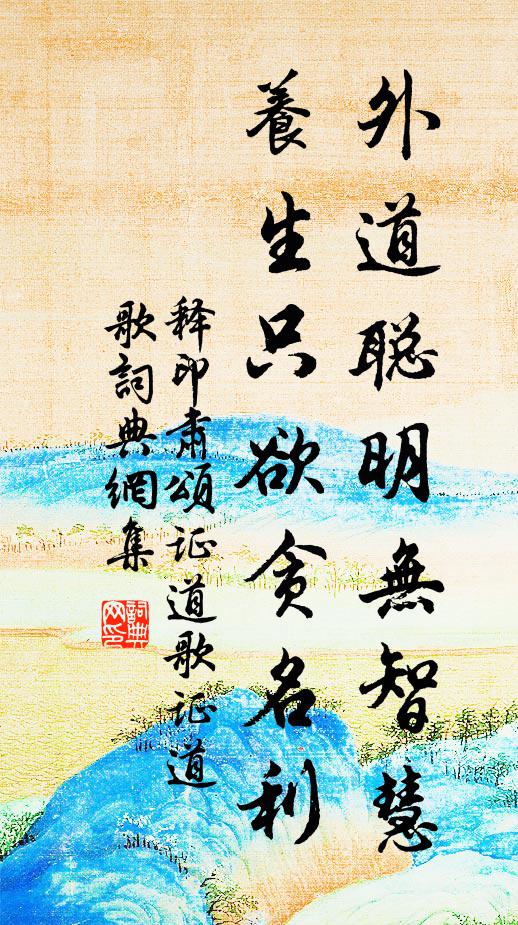 外道聪明無智慧
養生只欲贪名利
释印肃頌证道歌证道
歌詞典網集
詞典
网印